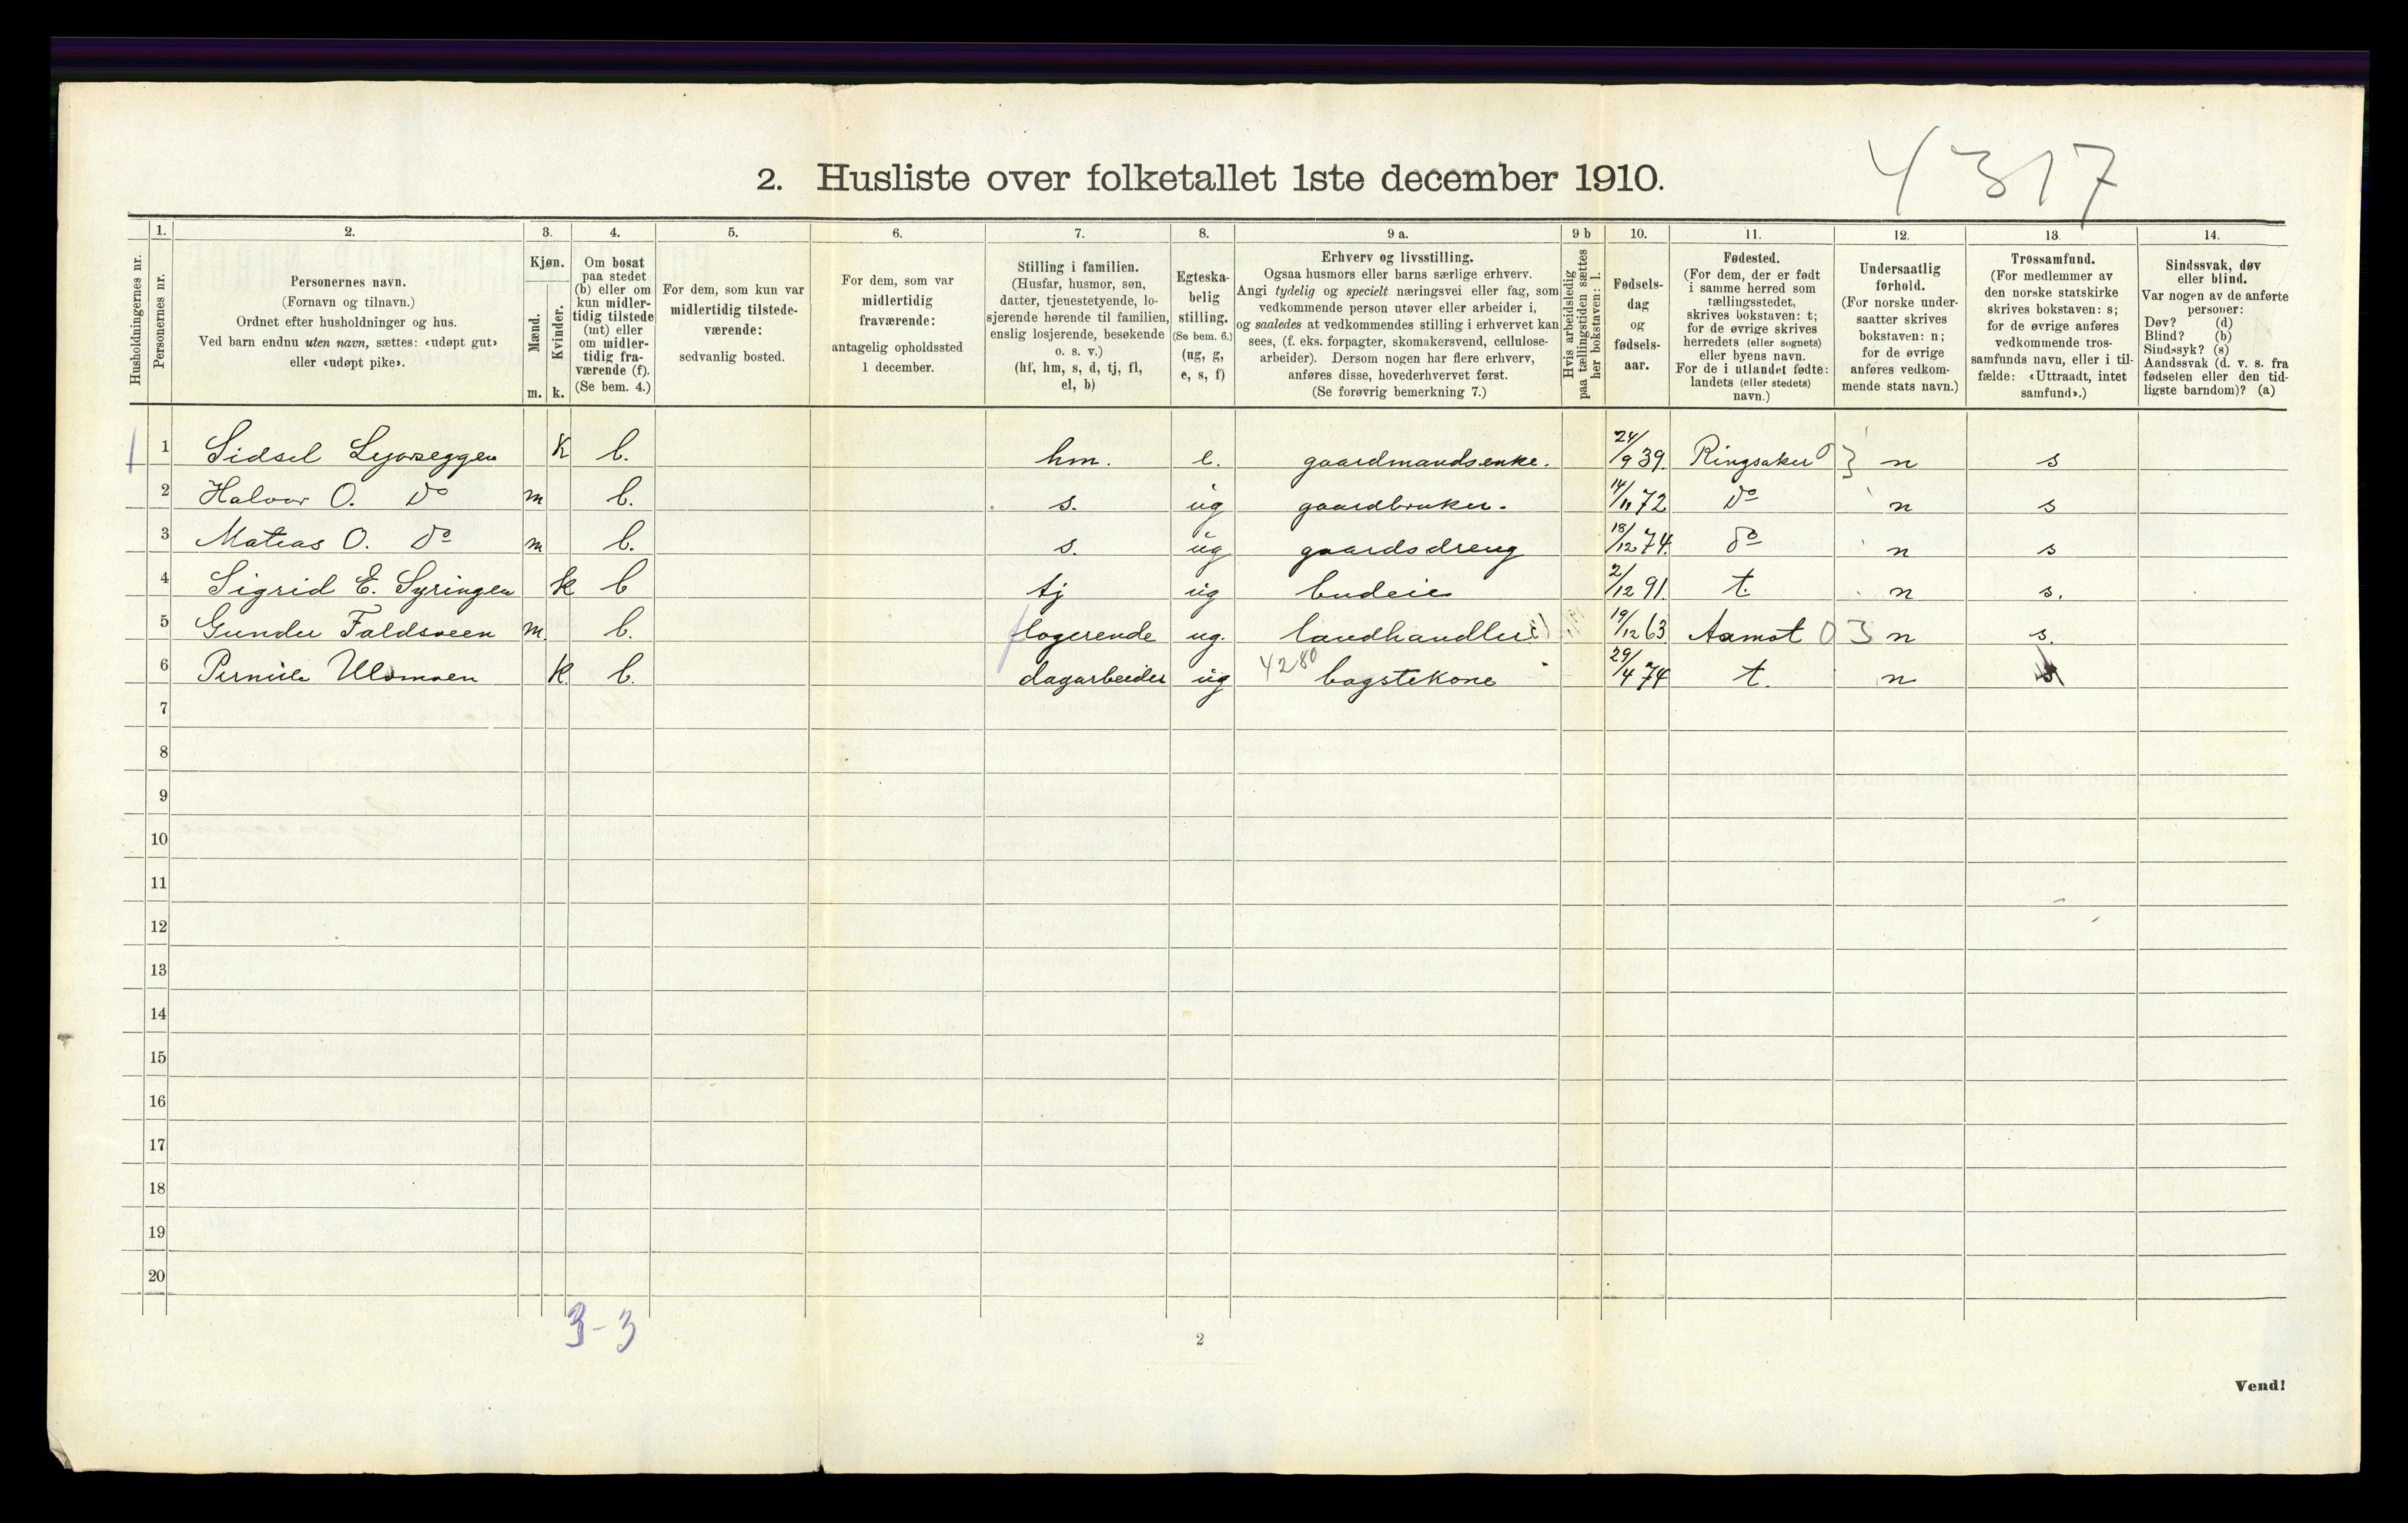 4317
2. Husliste over folketallet 1ste december 1910.
Husholdningernes nr.
1.
Personernes nr.
2.
Personernes navn.
(Fornavn og tilnavn.)
Ordnet efter husholdninger og hus.
Ved barn endnu uten navn, sættes: «udøpt gut»
eller «udøpt pike».
3.
Kjøn.
Mænd.
m.
Kvinder.
k.
4.
Om bosat
paa stedet
(b) eller om
kun midler-
tidig tilstede
(mt) eller
om midler-
tidig fra-
værende (f).
(Se bem. 4.)
5.
For dem, som kun var
midlertidig tilstede-
værende:
sedvanlig bosted.
6.
For dem, som var
midlertidig
fraværende:
antagelig opholdssted
1 december.
7.
Stilling i familien.
(Husfar, husmor, søn,
datter, tjenestetyende, lo-
sjerende hørende til familien,
enslig losjerende, besøkende
o. s. v.)
(hf, hm, s, d, tj, fl,
el, b)
8.
Egteska-
belig
stilling.
(Se bem. 6.)
(ug, g,
e, s, f)
9 a.
Erhverv og livsstilling.
Ogsaa husmors eller barns særlige erhverv.
Angi tydelig og specielt næringsvei eller fag, som
vedkommende person utøver eller arbeider i,
og saaledes at vedkommendes stilling i erhvervet kan
sees, (f. eks. forpagter, skomakersvend, cellulose-
arbeider). Dersom nogen har flere erhverv,
anføres disse, hovederhvervet først.
(Se forøvrig bemerkning 7.)
9 b
Hvis arbeidsledig
paa tællingstiden sættes
her bokstaven: l.
10.
Fødsels-
dag
og
fødsels-
aar.
11.
Fødested.
(For dem, der er født
i samme herred som
tællingsstedet,
skrives bokstaven: t;
for de øvrige skrives
herredets (eller sognets)
eller byens navn.
For de i utlandet fødte:
landets (eller stedets)
navn.)
12.
Undersaatlig
forhold.
(For norske under-
saatter skrives
bokstaven: n;
for de øvrige
anføres vedkom-
mende stats navn.)
13.
Trossamfund.
(For medlemmer av
den norske statskirke
skrives bokstaven: s;
for de øvrige anføres
vedkommende tros-
samfunds navn, eller i til-
fælde: «Uttraadt, intet
samfund».)
14.
Sindssvak, døv
eller blind.
Var nogen av de anførte
personer:
Døv? (d)
Blind? (b)
Sindssyk? (s)
Aandssvak (d. v. s. fra
fødselen eller den tid-
ligste barndom)? (a)
1 1 Sidsel K b. hm. e. gaardmandsenke. 24/9 39. Ringsaker 03 n s
2 Halvor O. Do m b. s. ug gaardbruker. 14/11 72 Do n s
3 Matias O. do m b. s. ug gaardsdreng 18/12 74. do n s
4 Sigrid E. Syringen k b tj ug budeie 2/12 91. t. n s.
5 Gunder Faldsveen m. b. logerende ug. landhandler 19/12 63 Aamot 03 n s.
6 Pernille Ulsmoen k. b. dagarbeider ug 4280 bagstekone 29/4 74 t. n s
7
8
9
10
11
12
13
14
15
16
17
18
19
20
3-3
2
Vend!